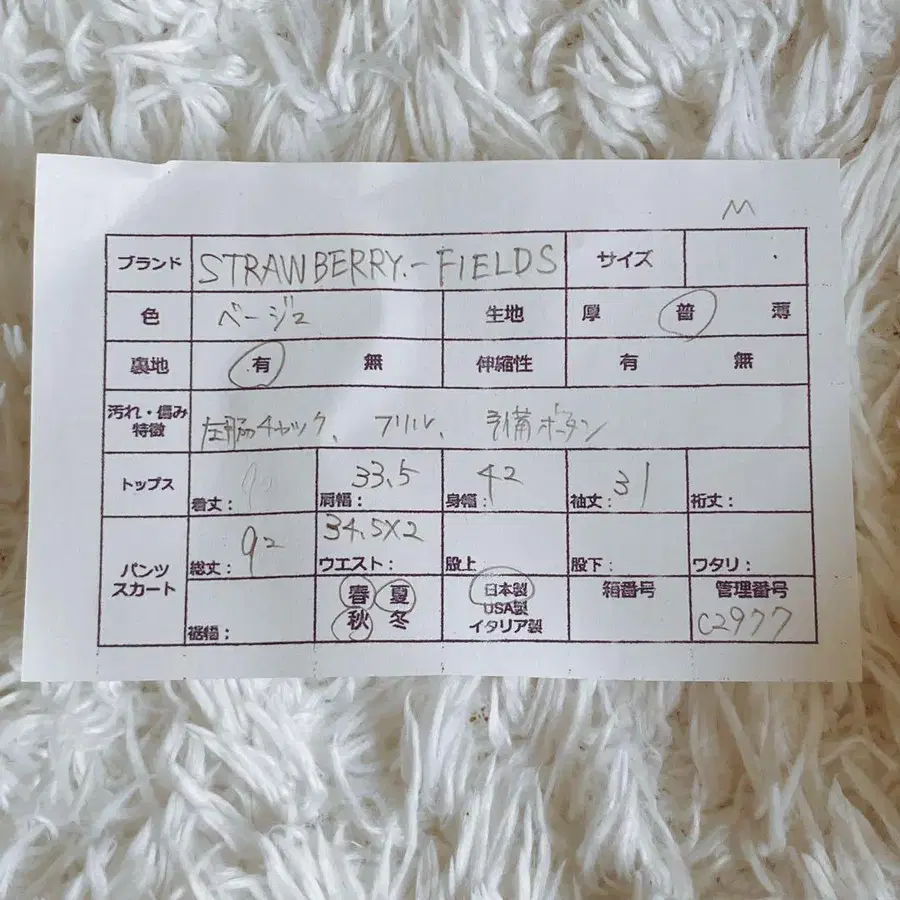 M
ブランド STRAWBERRY.-FIELDS サイズ
色 ベージュ 生地 厚 普 薄
裏地 有 無 伸縮性 有 無
汚れ・傷み
特徴 左脇チャック、フリル、予備ボタン
トップス 着丈: 肩幅: 33.5 身幅: 42 袖丈: 31 裄丈:
パンツ
スカート 総丈: 92 ウエスト: 34.5×2 股上 股下: ワタリ:
裾幅: 春 夏 秋 冬 日本製 USA製 イタリア製 箱番号 管理番号 C2977